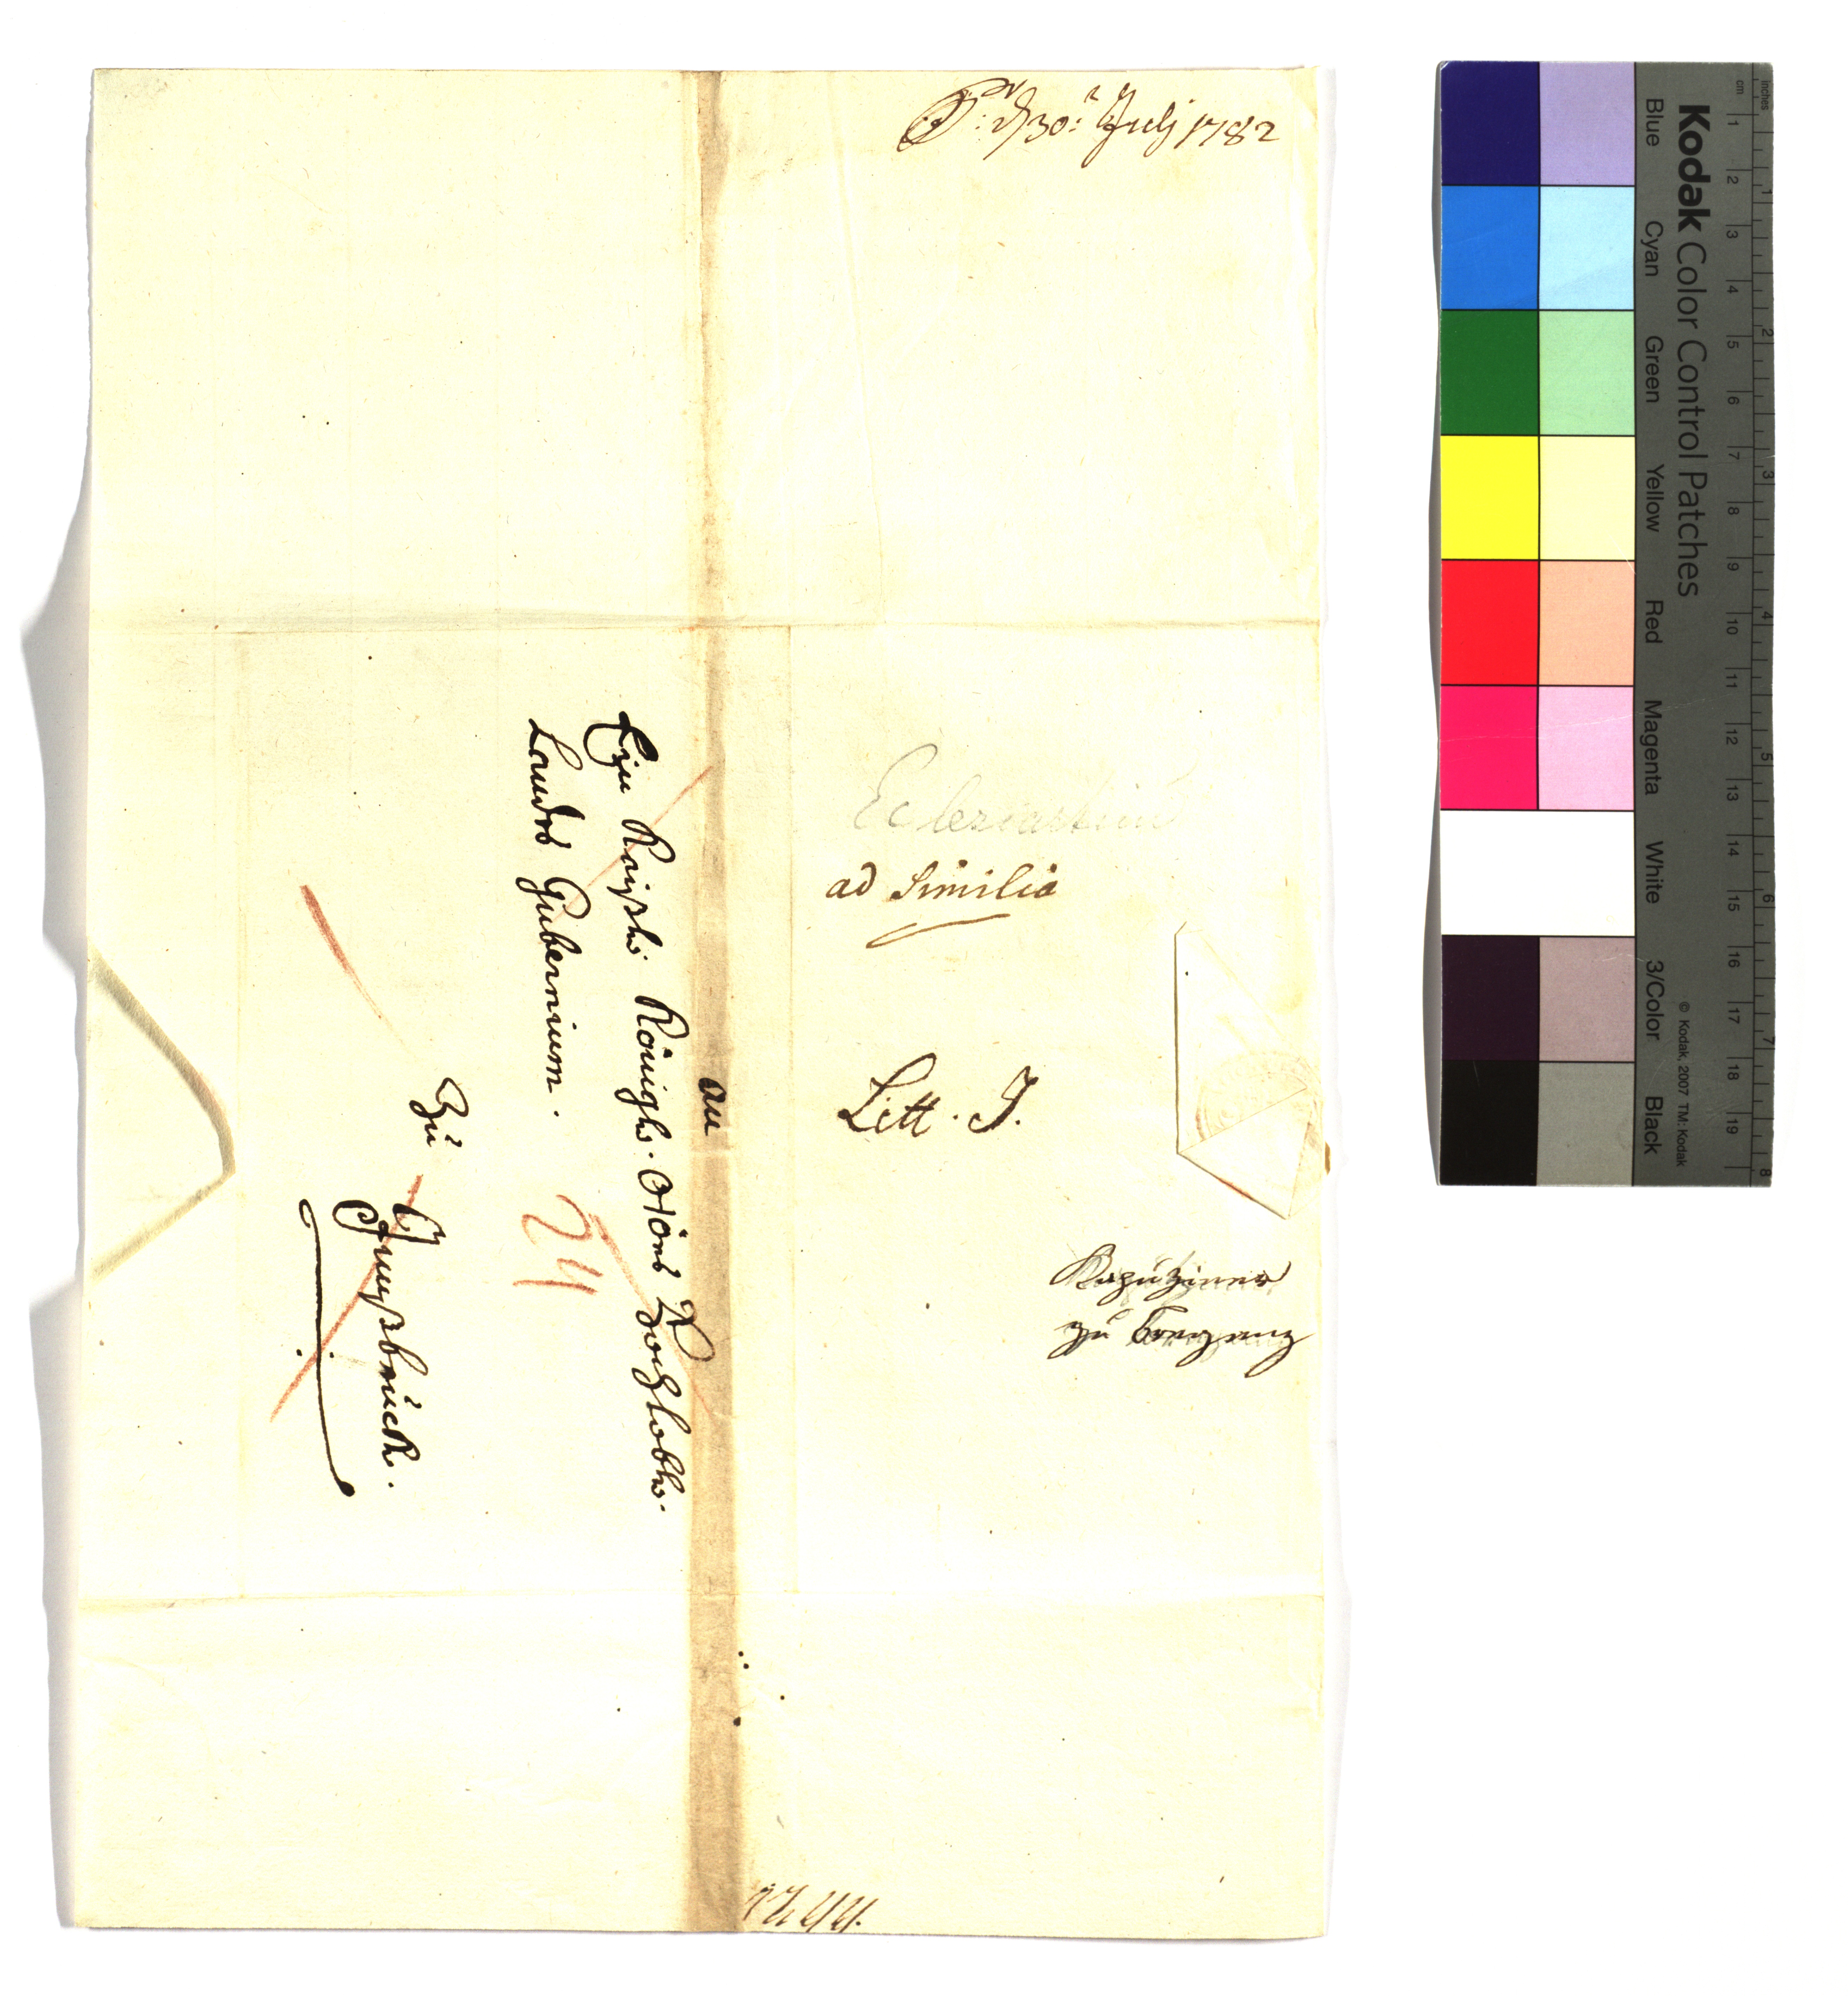 den 30: July 1782
Ecclesiasticum
ad Similia
Litt. I.
Kapuziner
zu Bregenz
an
Ein Kayßl. Königl. O:Ö: Hochlobl.
Landes Gubernium.
Zu
Innßbruck.
24
Kodak Color Control Patches
Blue Cyan Green Yellow Red Magenta White 3/Color Black
© Kodak, 2007 TM: Kodak
inches 1 2 3 4 5 6 7 8
cm 1 2 3 4 5 6 7 8 9 10 11 12 13 14 15 16 17 18 19